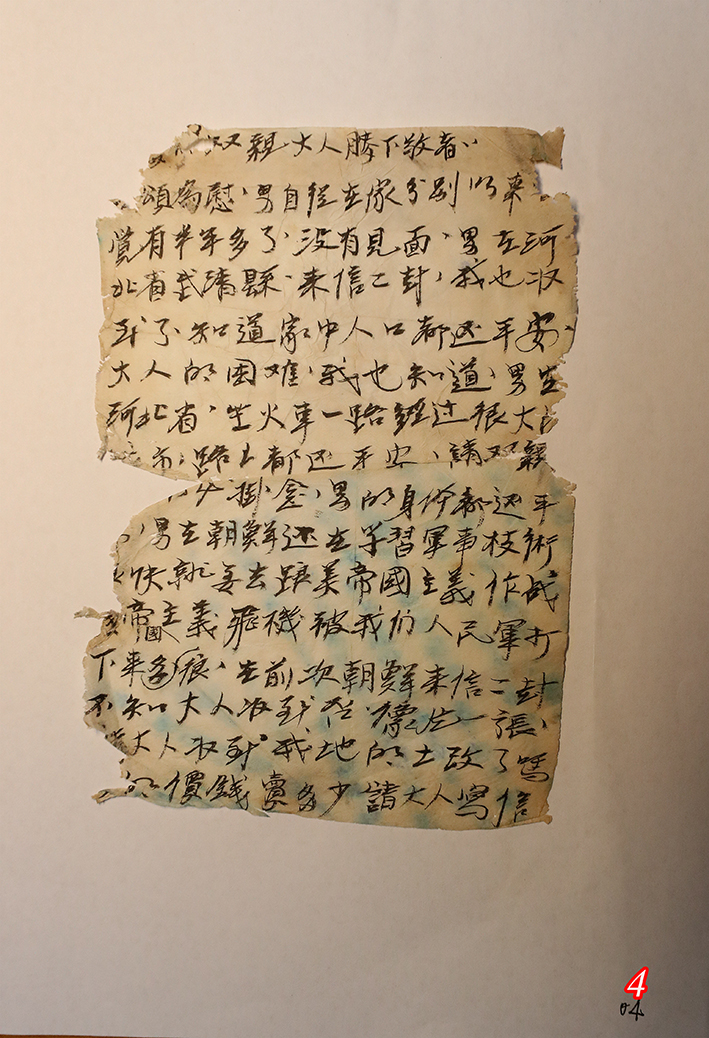 双親大人膝下敬者
頌為慰、男自從在家分別以来
覚有半年多了、没有見面、男在河
北省武清縣、来信二封、我也收
到了、知道家中人口都还平安、
大人的困难、我也知道、男坐
河北省、坐火車一路經过很大
市、路上都还平安、請双親
掛念、男的身体都还平
男在朝鮮还在学習軍事技術
快就要去跟美帝國主義作战
帝國主義飛機被我们人民軍打
下来多很、在前次朝鮮来信二封
不知大人收到否、像片一張、
大人收到我地的土改了嗎
的價錢賣多少請大人寫信
4
04